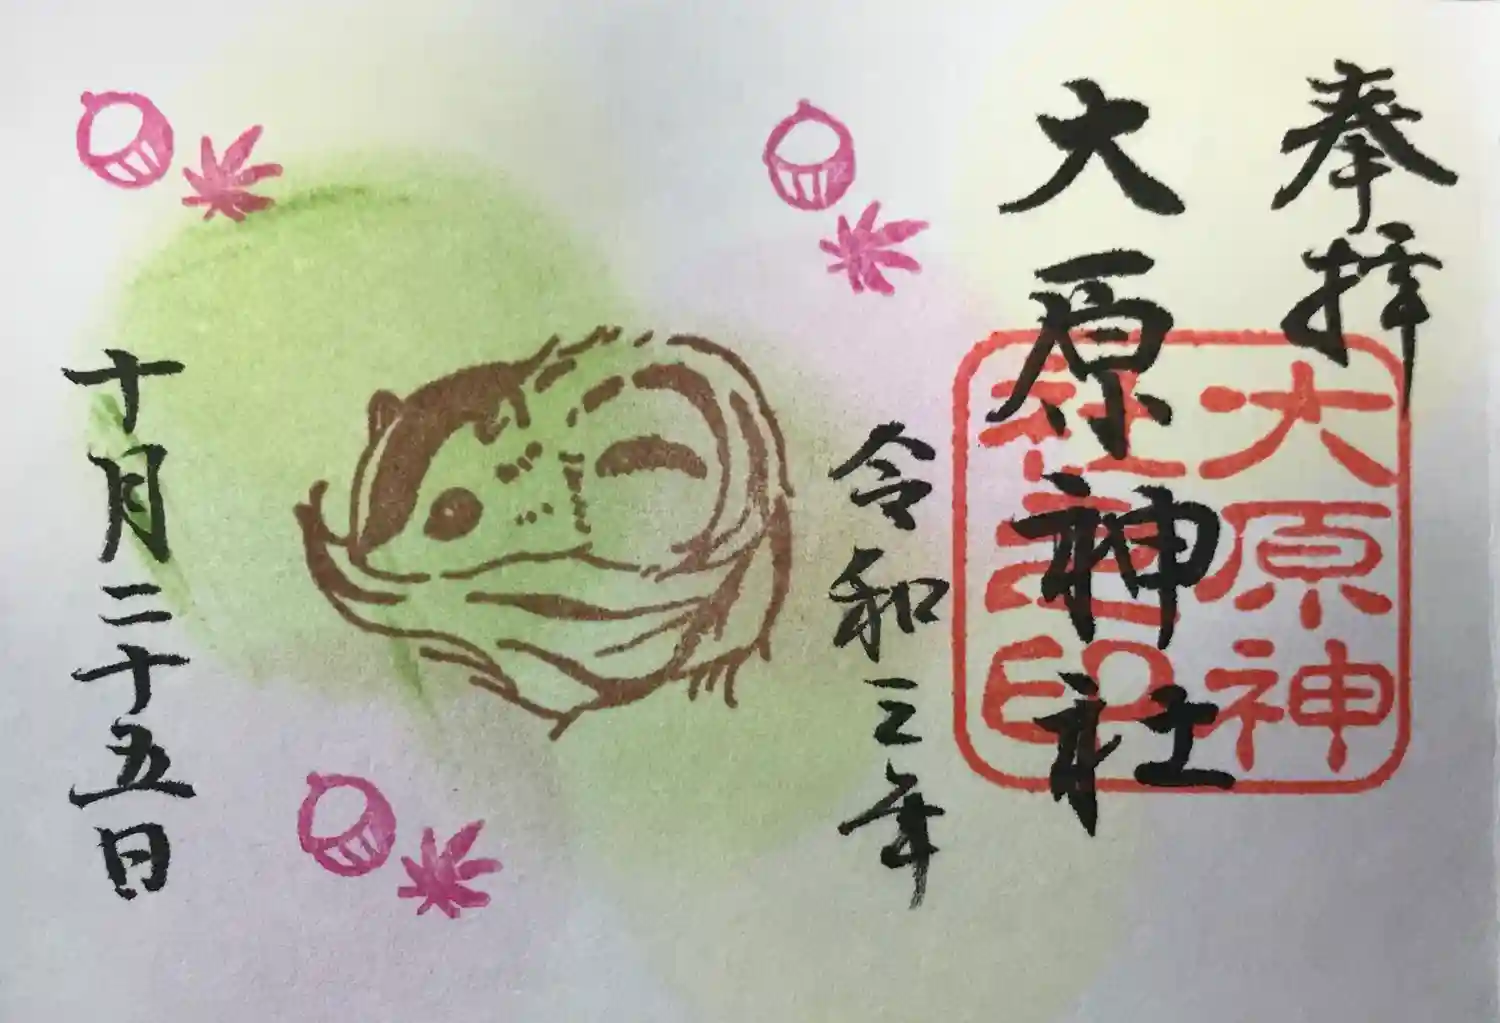 奉拝
大原神社
大原神
社之印
令和三年
十月二十五日